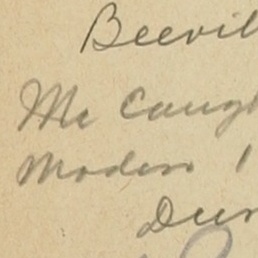 Beevil
Mc Caugh
Modern 1
Dun